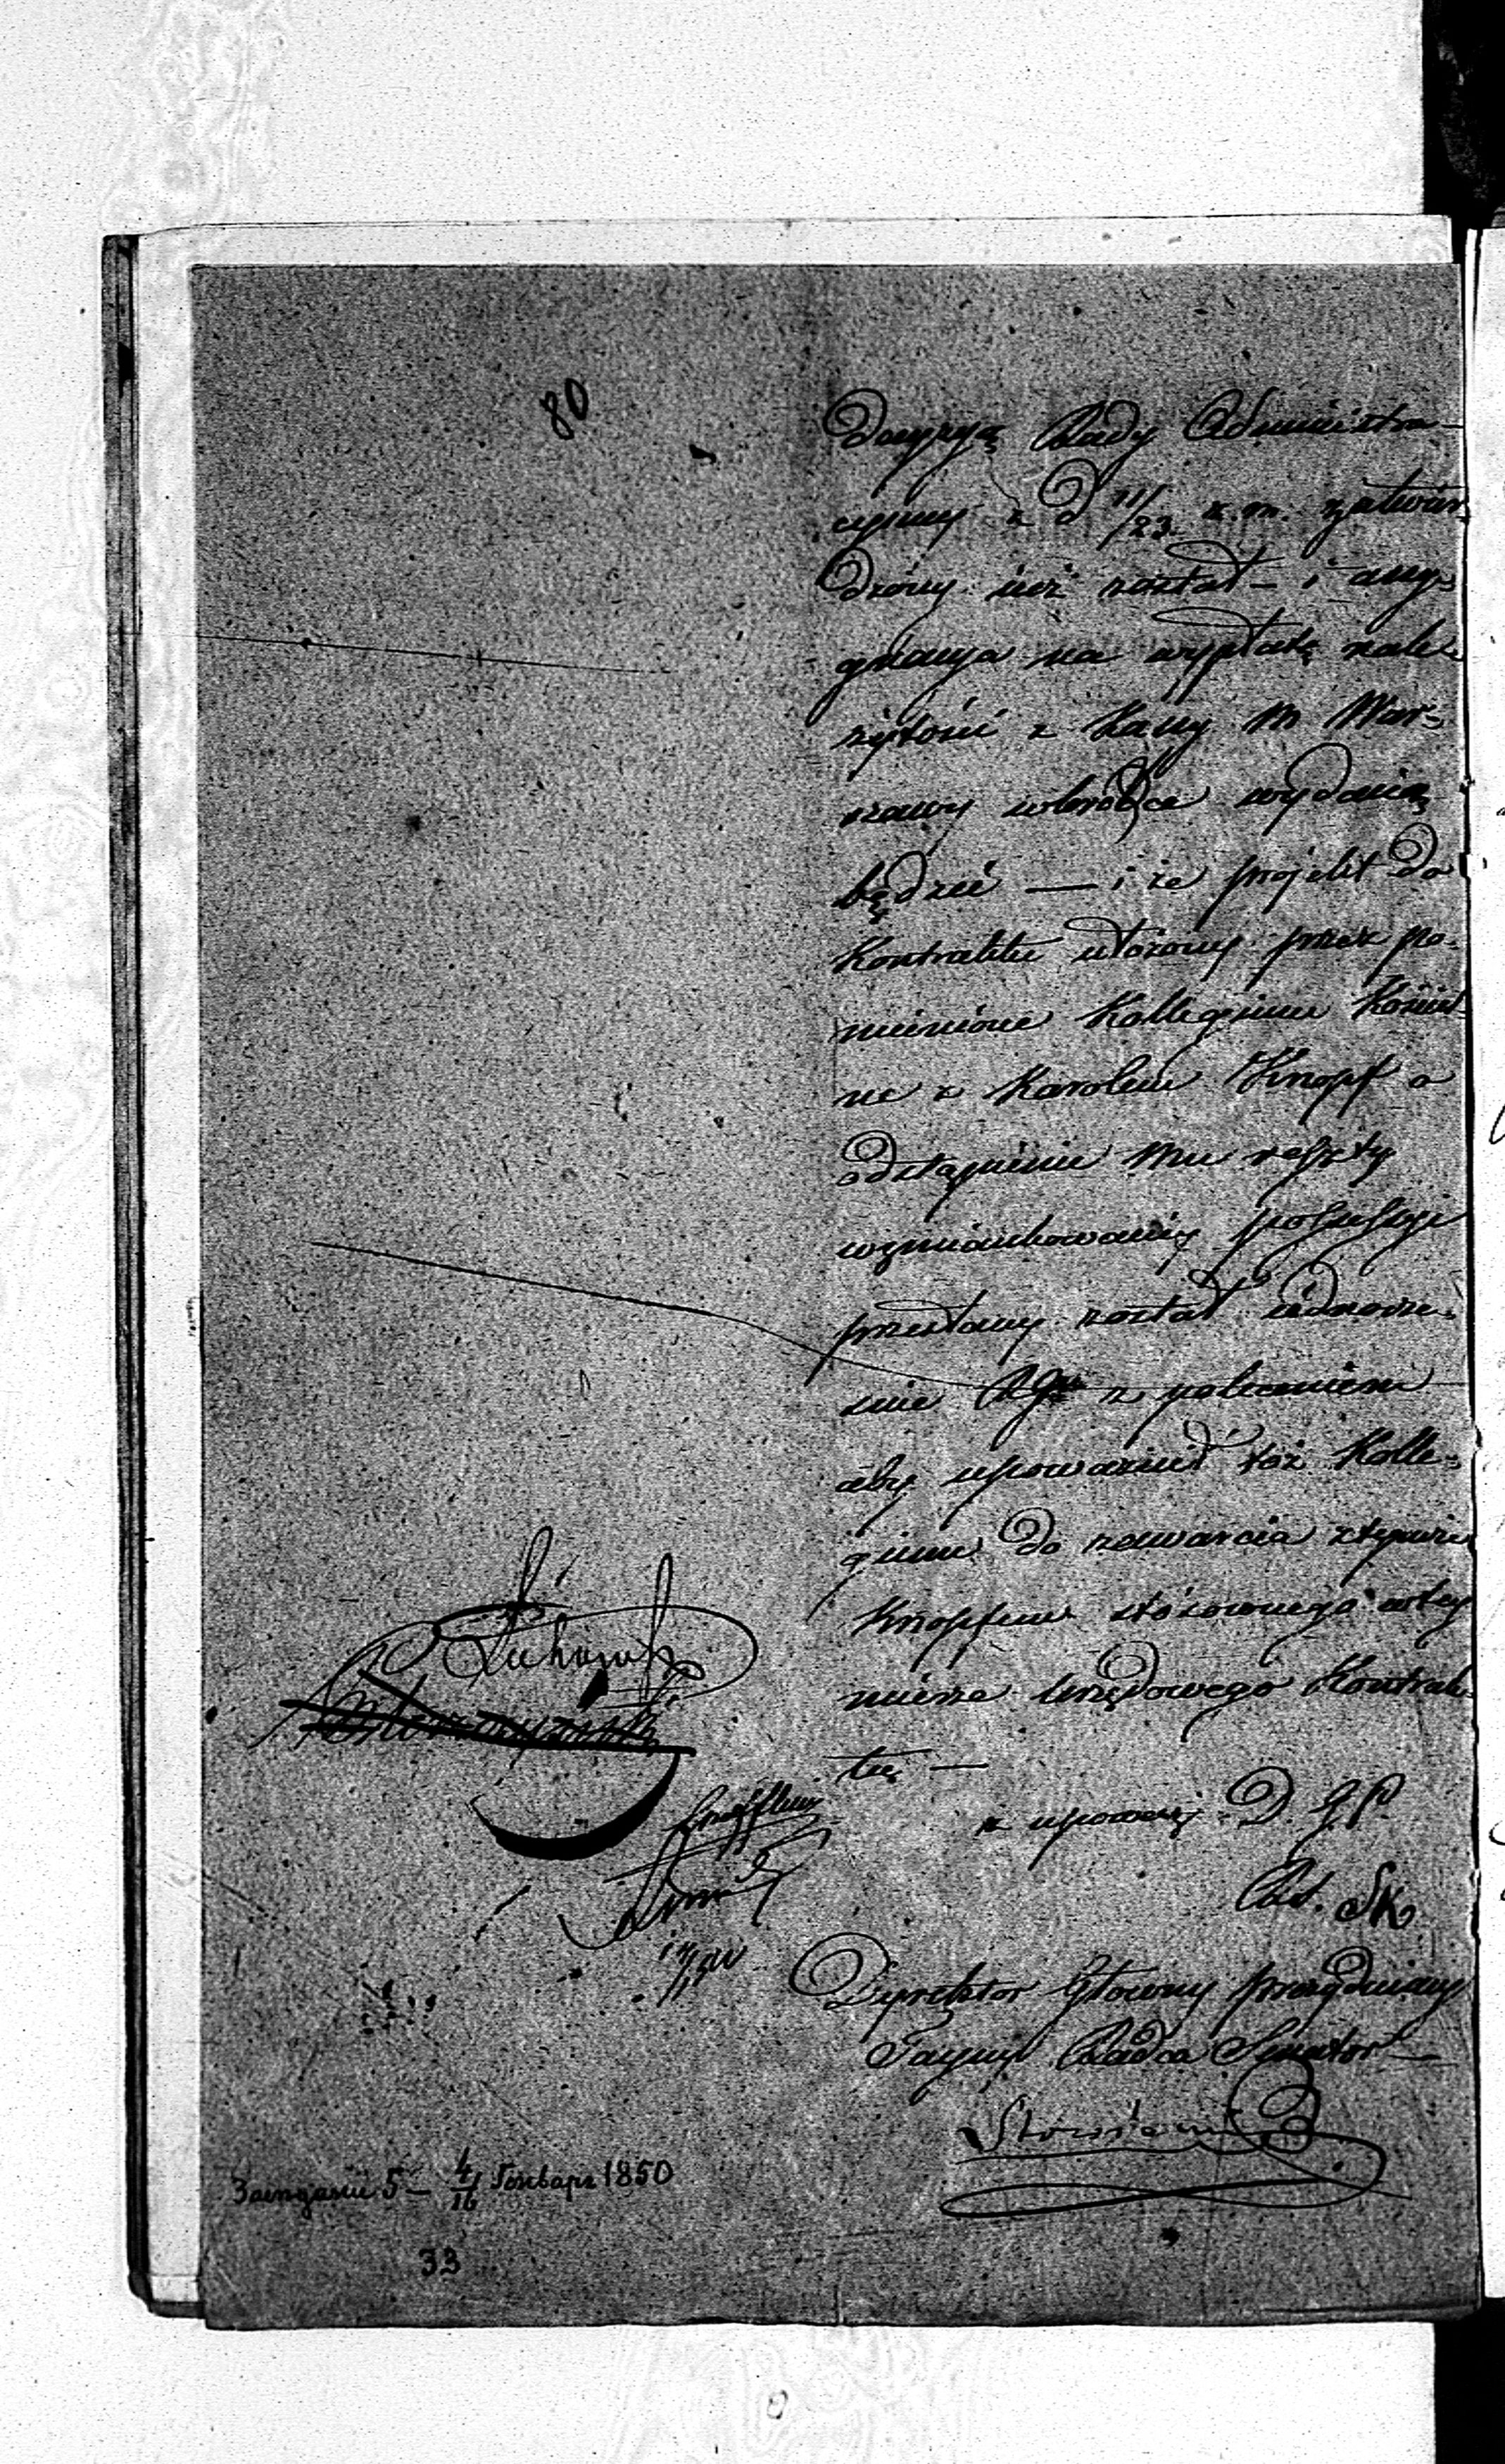 80
Decyzyą Rady Administra-
cyjney z d 11/23 z. m. zatwier-
dzony iuż został – i assy-
gnacya na wypłatę nale-
żytości z Kassy M War-
szawy wkrótce wydaną
będzie — i że projekt do
Kontraktu ułożony przez po-
mienione Kollegium Koście-
ne z Karolem Knopf o
odstąpienie mu reszty
wzmiankowaney possessyi
przesłany został iednocze-
śnie z poleceniem
aby upoważnił toż Kolle-
gium do zawarcia z tymże
Knopfem stósownego w tey
mierze Urzędowego Kontrak-
tu —
z upoważ. D. G. P.
Dyrektor Główny prezyduiący
Tayny Radca Senator
5 – 4/16 Января 1850
33